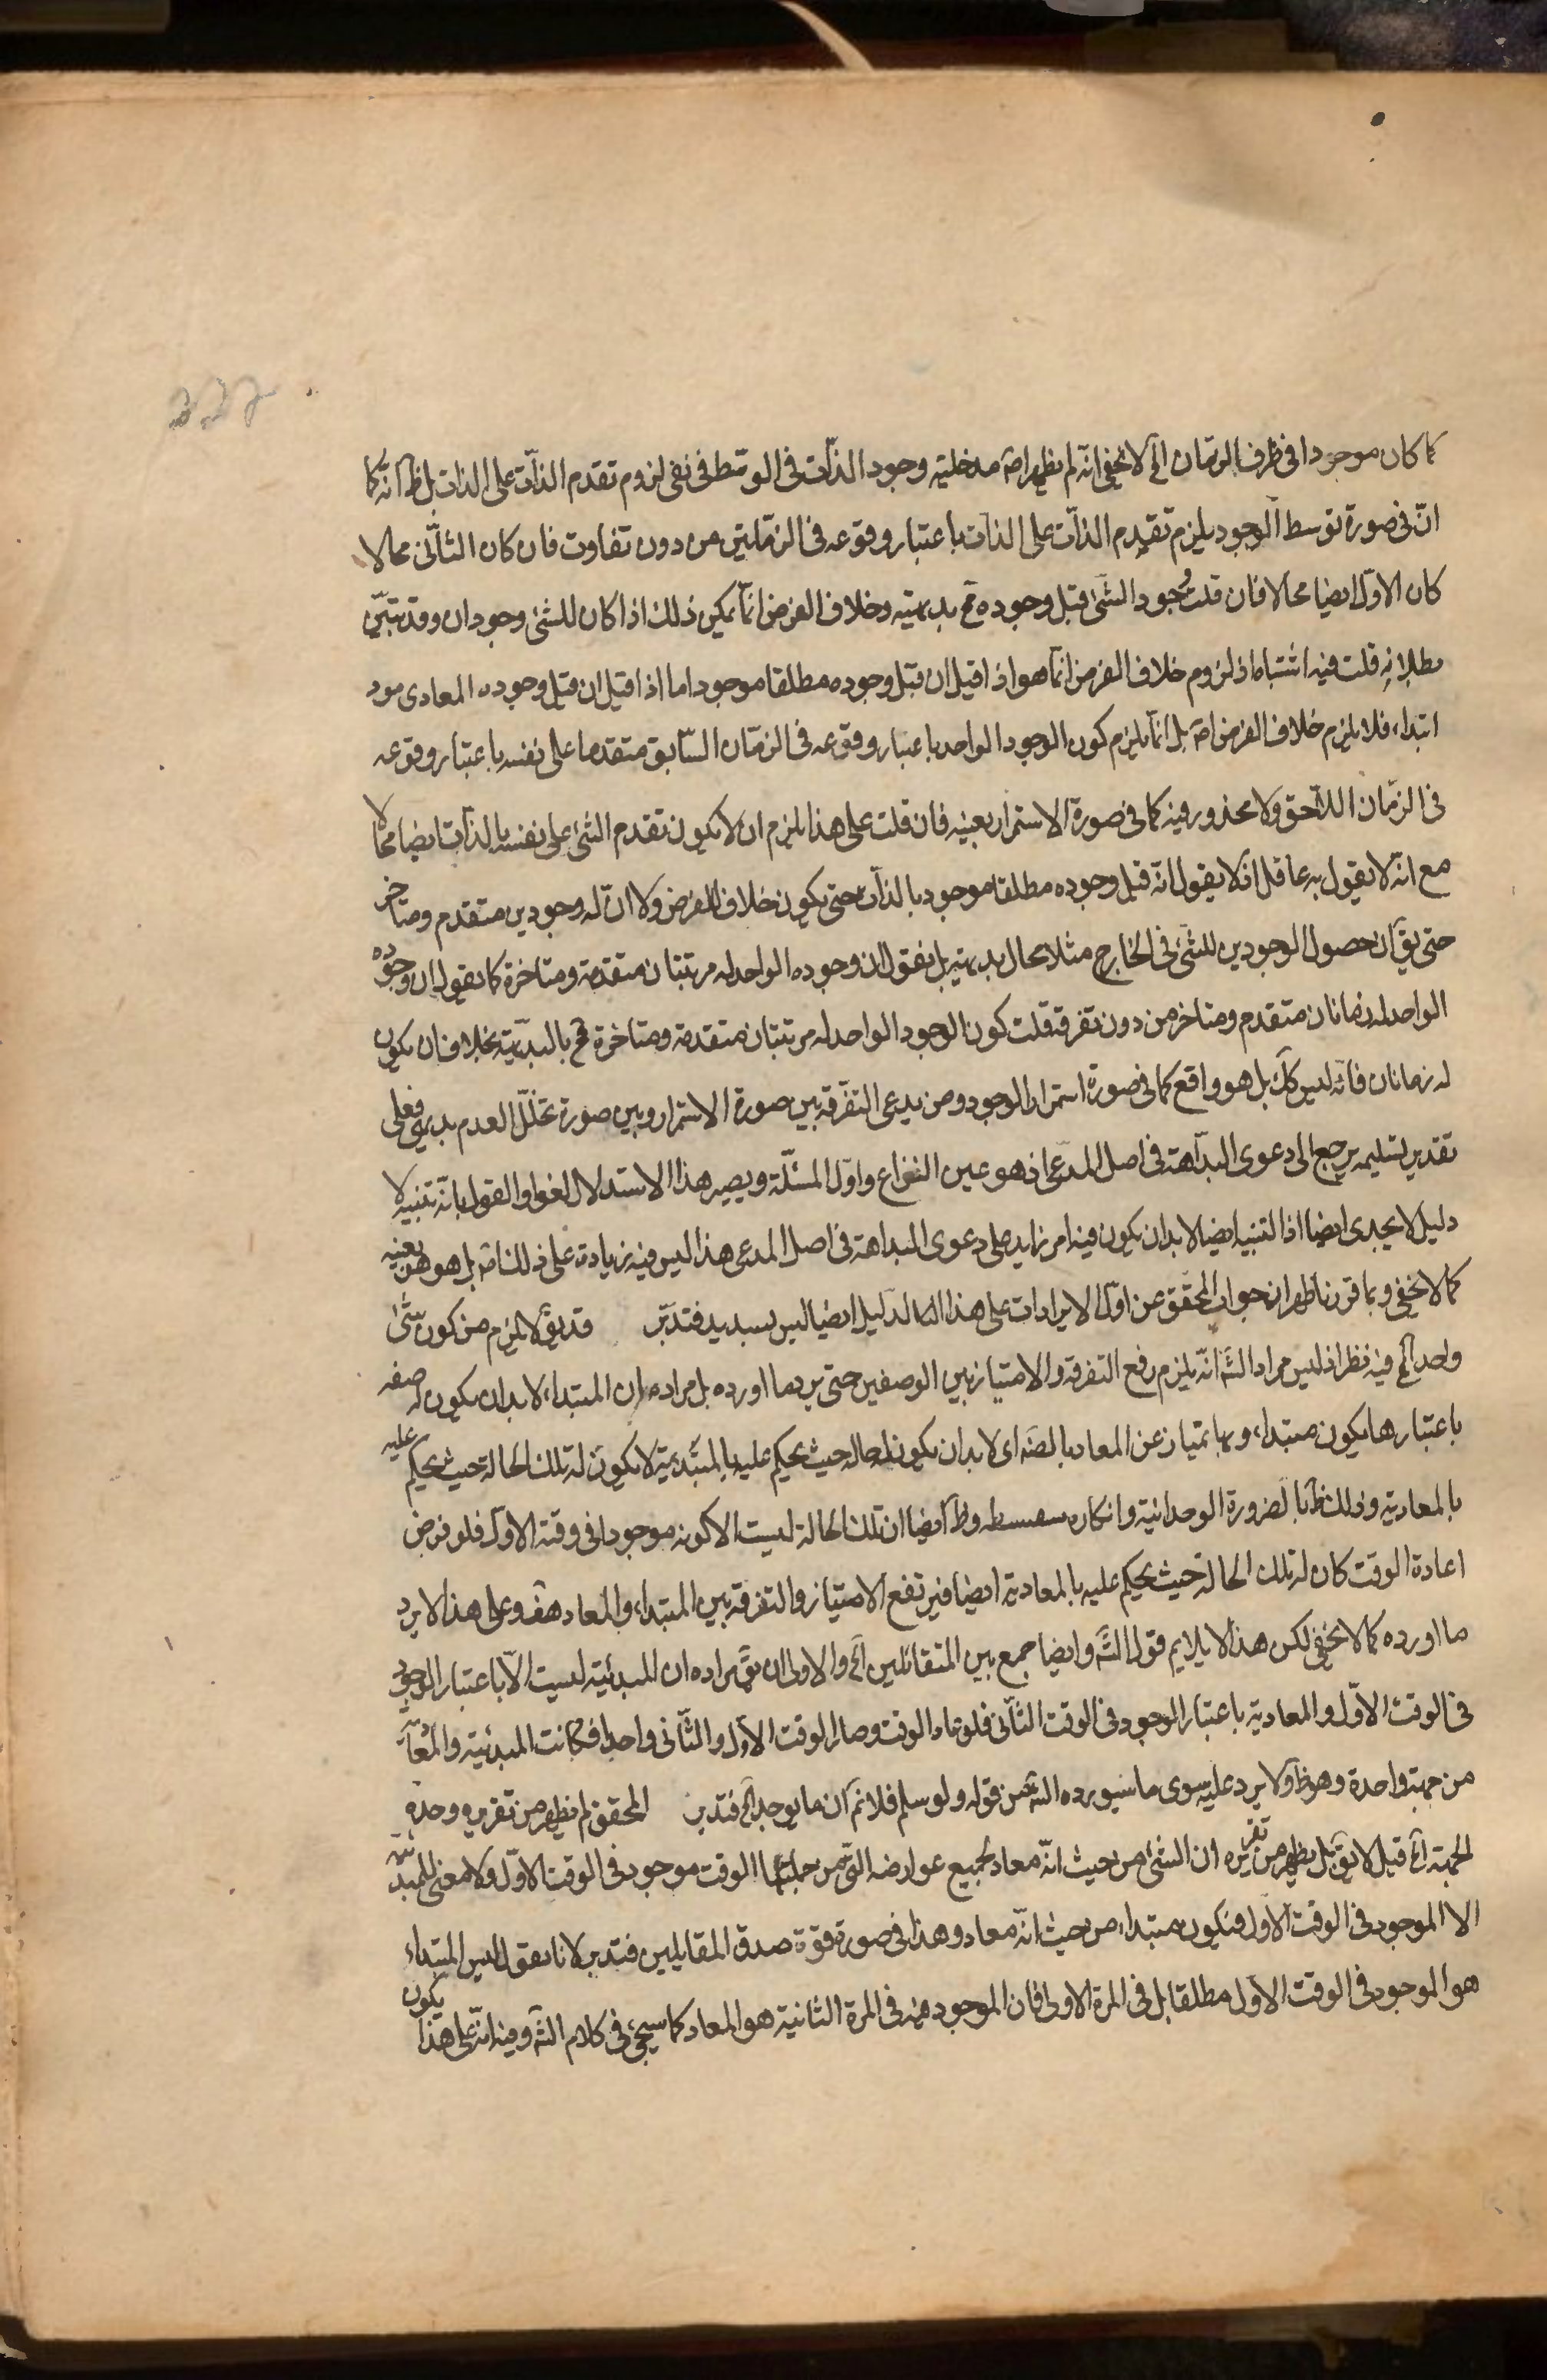 كما كان موجودا فى ظرف الزمان الخ لا يخفى انه لم يظهر اصلا مدخلية وجود الذات فى الوسط فى نفى لزوم تقدم الذات على الذات بل ظ انه كما
انّ فى صورة توسط الوجود يلزم تقدم الذات على الذات باعتبار وقوعه فى الزمانين من دون تفاوت فان كان الثانى محالا
كان الاوّل ايضا محالا فان قلت وجود الشئ قبل وجوده مح بديهية وخلاف الفرض انما يمكن ذلك اذا كان للشئ وجودان وقد تبيّن
بطلانه قلت فيه اشتباه اذ لزوم خلاف الفرض انما هو اذا قيل ان قبل وجوده مطلقا موجود اما اذا قيل ان قبل وجوده المعادى موجود
ابتداء فلا يلزم خلاف الفرض اصلا بل انما يلزم كون الوجود الواحد باعتبار وقوعه فى الزمان السّابق متقدما على نفسه باعتبار وقوعه
فى الزمان اللاحق ولا محذور فيه كما فى صورة الاستمرار بعينه فان قلت على هذا يلزم ان لا يكون تقدم الشئ على نفسه بالذات ايضا محالا
مع انه لا يقول به عاقل اذ لا يقول انه قبل وجوده مطلقا موجود بالذات حتى يكون خلاف الفرض ولا ان له وجودين متقدم ومتاخر
حتى يق ان حصول الوجودين للشئ فى الخارج مثلا محال بديهية بل نقول ان وجوده الواحد له مرتبتان متقدمة ومتاخرة كما يقول ان وجوده
الواحد له زمانان متقدم ومتاخر من دون تفرقة قلت كون الوجود الواحد له مرتبتان متقدمة ومتاخرة مح بالبديهية بخلاف ان يكون
له زمانان فانه ليس كك بل هو واقع كما فى صورة استمرار الوجود ومن يدعى التفرقة بين صورة الاستمرار وبين صورة تخلّل العدم بديهى فعلى
تقدير تسليمه يرجع الى دعوى البداهة فى اصل المدعى اذ هو عين النزاع واوّل المسئلة ويصير هذا الاستدلال لغوا والقول بانه تنبيه لا
دليل لا يجدى ايضا اذ التنبيه ايضا لابد ان يكون فيه امر زايد على دعوى البداهة فى اصل المدعى هذا ليس فيه زيادة على ذلك اصلا بل هو هو بعينه
كما لا يخفى وبما قررنا ظهر ان جواب المحقق عن اوّل الايرادات على هذا الدليل ايضا ليس بسديد فتدبّر قد يق لا يلزم من كون شئ
واحد الخ فيه نظر اذ ليس مراد الش انه يلزم رفع التفرقة والامتياز بين الوصفين حتى يرد ما اورده بل مراده ان المبتداء لابد ان يكون له صفة
باعتبارها يكون مبتداء وبها يمتاز عن المعاد بالضرورة اى لابد ان يكون له حالة حيث يحكم عليه بالمبتدئية لا يكون له تلك الحالة حيث يحكم عليه
بالمعادية وذلك ظ بالضرورة الوحدانية وانكاره سفسطة وظ ايضا ان تلك الحالة ليست الا كونه موجودا فى وقته الاول فلو فرض
اعادة الوقت كان له تلك الحالة حيث يحكم عليه بالمعادية ايضا فيرتفع الامتياز والتفرقة بين المبتداء والمعاد هف وعلى هذا لا يرد
ما اورده كما لا يخفى لكن هذا لا يلايم قول الش وايضا جمع بين المتقابلين الخ والاولى ان يق مراده ان المبدئية ليست الا باعتبار الوجود
فى الوقت الاوّل والمعادية باعتبار الوجود فى الوقت الثانى فلو عاد الوقت وصار الوقت الاول والثانى واحدا فكانت المبدئية والمعادية
من جهة واحدة وهو ظ ولا يرد عليه سوى ما سيورده الش من قوله ولو سلم فلا نم ان ما يوجد الخ فتدبر المحقق لم يظهر من تقريره وحدة
الجهة الخ قيل لا يق بل يظهر من تقريره ان الشئ من حيث انّه معاد بجميع عوارضه التى من جملتها الوقت موجود فى الوقت الاوّل ولا معنى للمبتداء
الا الموجود فى الوقت الاول فيكون مبتداء من حيث انّه معاد وهذا فى صورة قوة صدق المقابلين فتدبر لانا نقول ليس المبتداء
هو الموجود فى الوقت الاول مطلقا بل فى المرة الاولى فان الموجود فيه فى المرة الثانية هو المعاد كما سيجئ فى كلام الش وفيه انه على هذا يكون